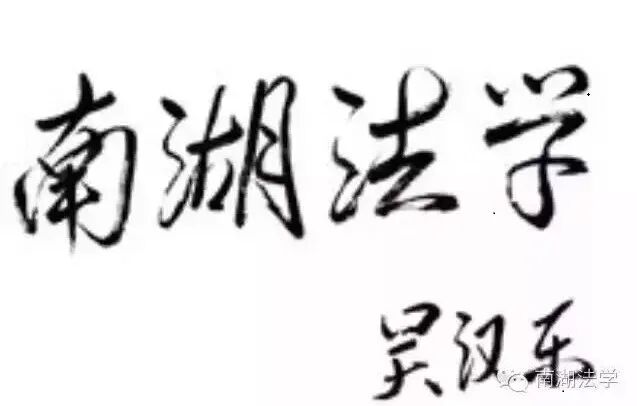 南湖法学
吴汉东
南湖法学